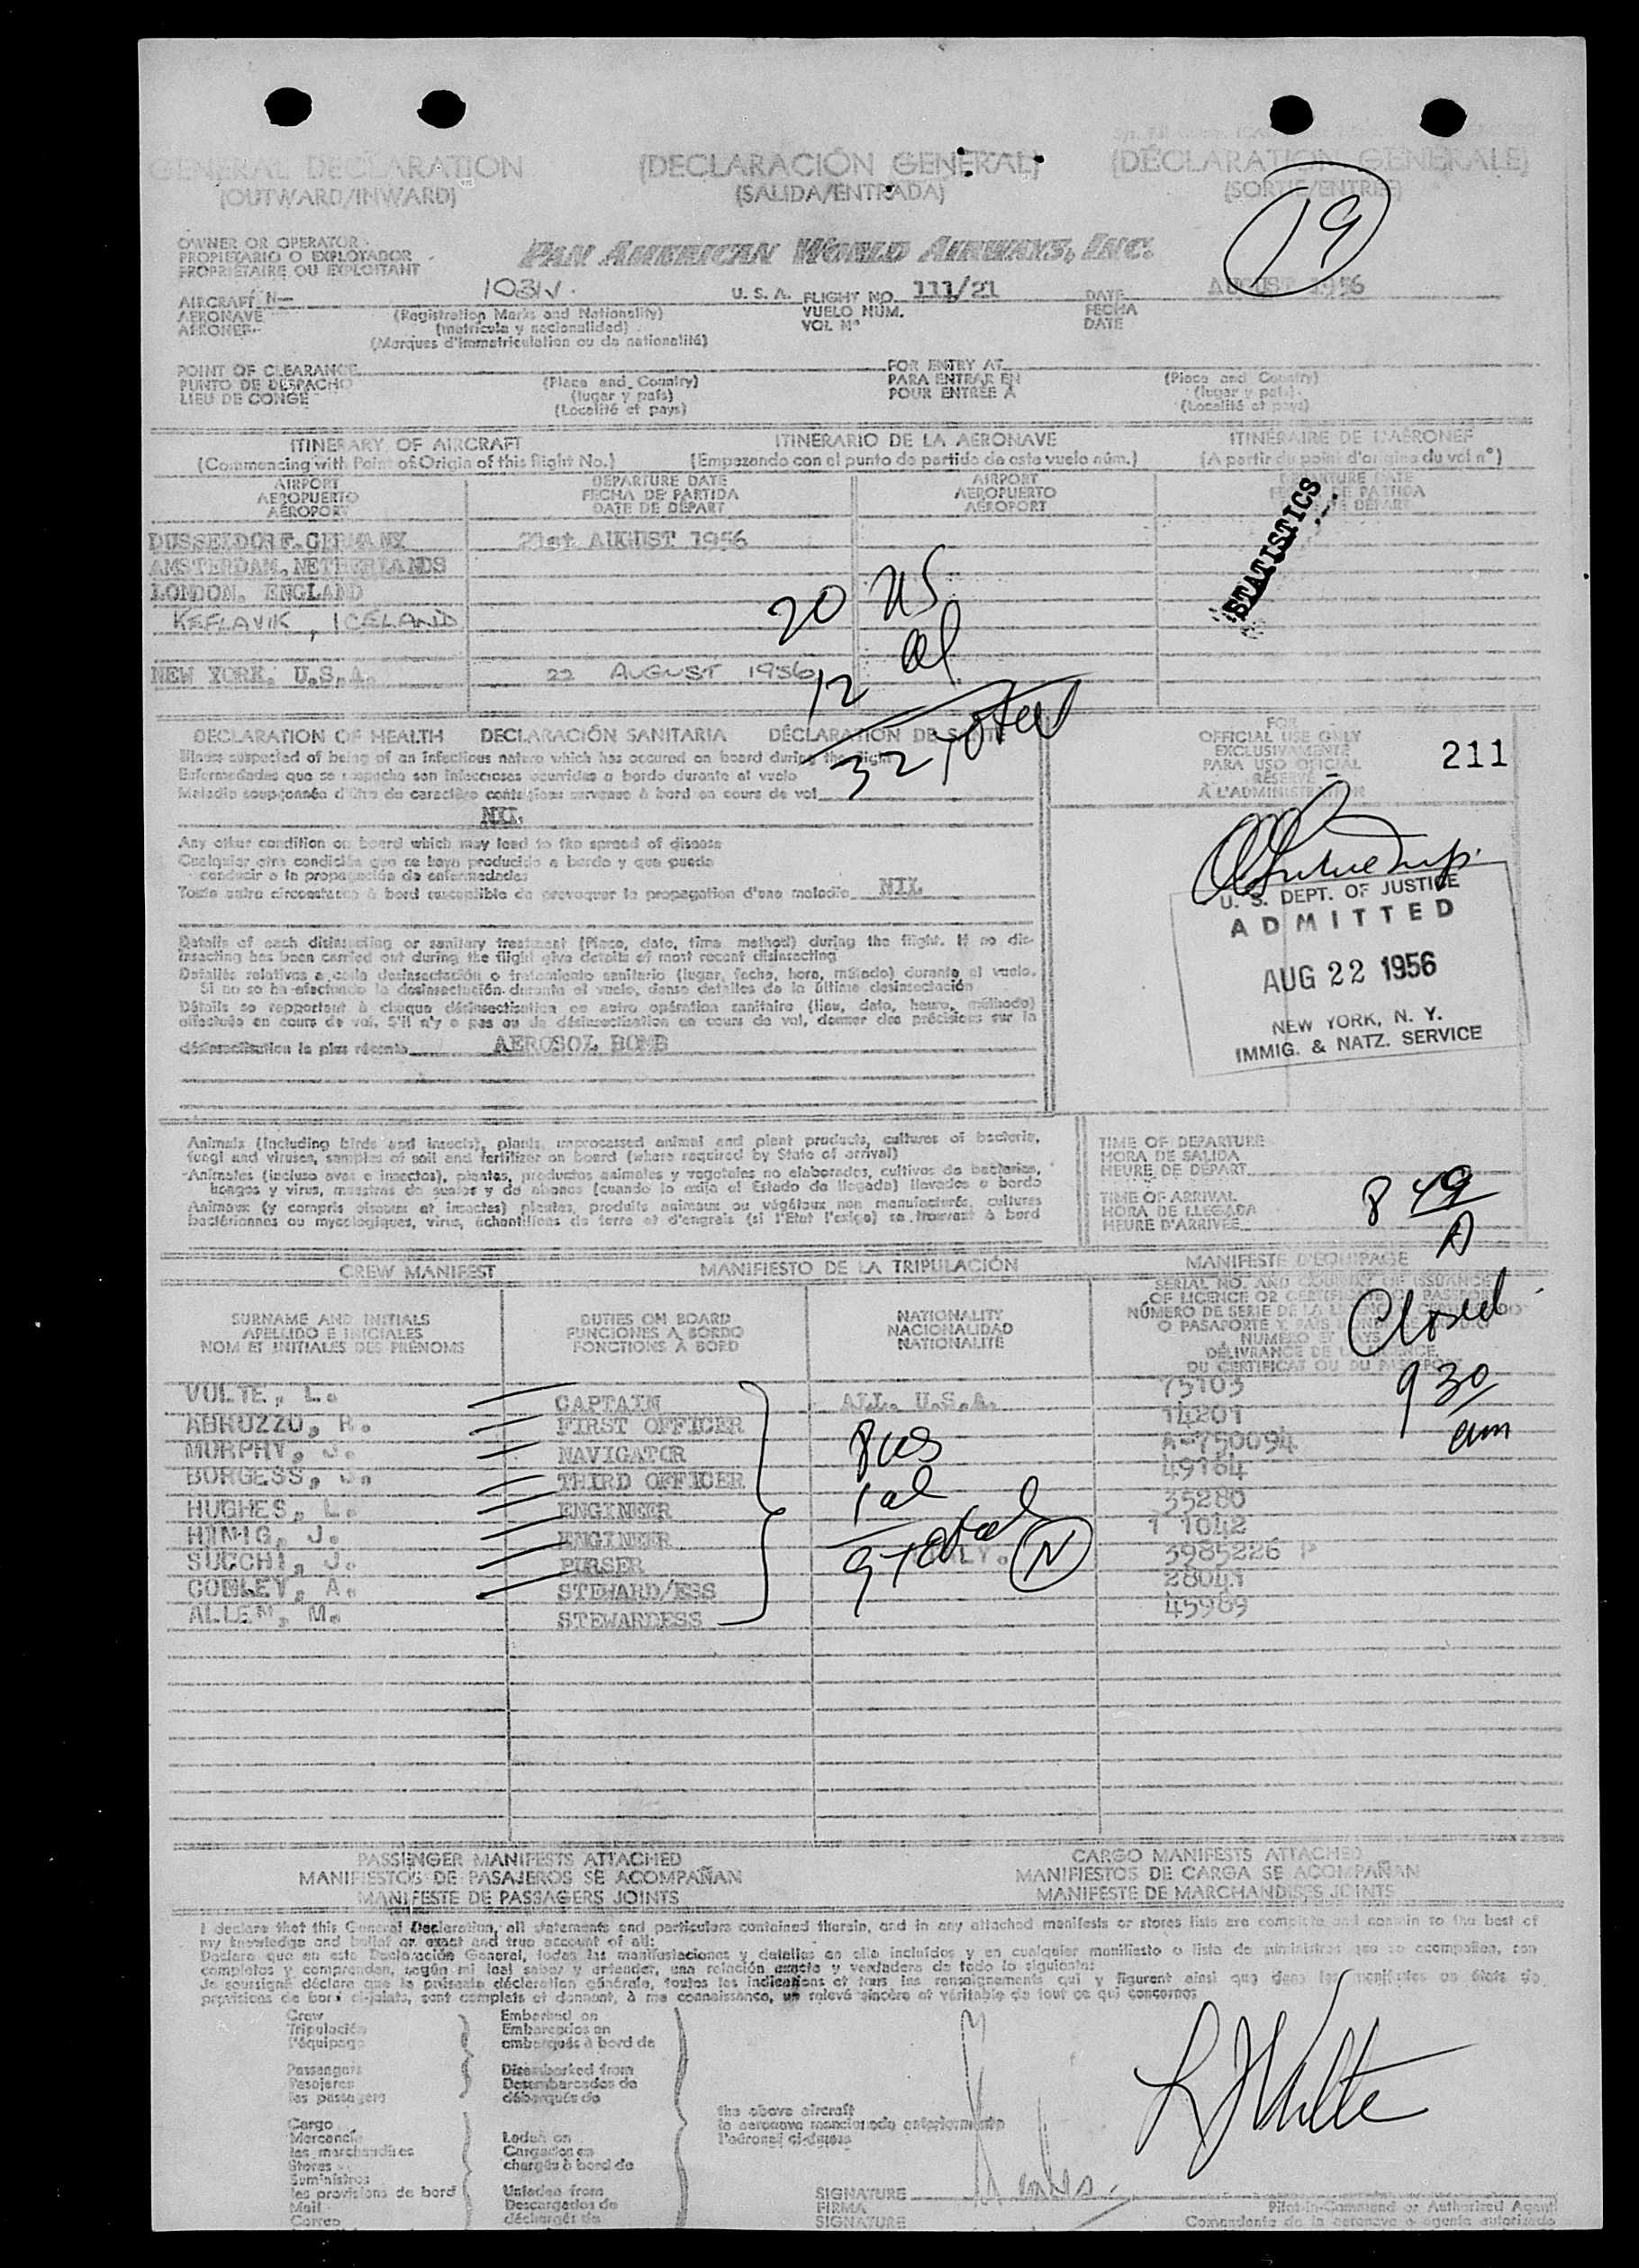 GENERAL DECLARATION (DECLARACIÓN GENERAL) (DÉCLARATION GENERALE)
(OUTWARD/INWARD) (SALIDA/ENTRADA) (SORTIE/ENTREE)
19
OWNER OR OPERATOR
PROPIETARIO O EXPLOTADOR
PROPRIETAIRE OU EXPLOITANT
PAN AMERICAN WORLD AIRWAYS, INC.
AIRCRAFT N— 1031V. U. S. A. FLIGHT NO. 111/21 DATE AUGUST 1956
AERONAVE (Registration Marks and Nationality) VUELO NUM. FECHA
AERONEF (matrícula y nacionalidad) VOL Nº DATE
(Marques d'immatriculation ou de nationalité)
POINT OF CLEARANCE FOR ENTRY AT
PUNTO DE DESPACHO (Place and Country) PARA ENTRAR EN (Place and Country)
LIEU DE CONGE (lugar y país) POUR ENTRÉE A (lugar y país)
(Localité et pays) (Localité et pays)
ITINERARY OF AIRCRAFT ITINERARIO DE LA AERONAVE ITINÉRAIRE DE L'AÉRONEF
(Commencing with Point of Origin of this flight No.) (Empezando con el punto de partida de este vuelo núm.) (A partir du point d'origine du vol nº)
AIRPORT DEPARTURE DATE AIRPORT DEPARTURE DATE
AEROPUERTO FECHA DE PARTIDA AEROPUERTO FECHA DE PARTIDA
AÉROPORT DATE DE DÉPART AÉROPORT DATE DE DÉPART
STATISTICS
DUSSELDORF. GERMANY 21st AUGUST 1956
AMSTERDAM, NETHERLANDS
LONDON. ENGLAND
KEFLAVIK, ICELAND
NEW YORK. U.S.A. 22 AUGUST 1956
20 US
12 al
32 total
DECLARATION OF HEALTH DECLARACIÓN SANITARIA DÉCLARATION DE SANTÉ
Illness suspected of being of an infectious nature which has occured on board during the flight
Enfermedades que se sospecha son infecciosas ocurridas a bordo durante el vuelo
Maladie soupçonnée d'être de caractère contagieux survenue à bord en cours de vol
NIL
Any other condition on board which may lead to the spread of disease
Cualquier otra condición que se haya producido a bordo y que pueda
conducir a la propagación de enfermedades
Toute autre circonstance à bord susceptible de provoquer la propagation d'une maladie NIL
Details of each disinsecting or sanitary treatment (Place, date, time method) during the flight. If no dis-
insecting has been carried out during the flight give details of most recent disinsecting
Detalles relativos a cada desinsectación o tratamiento sanitario (lugar, fecha, hora, método) durante el vuelo.
Si no se ha efectuado la desinsectación durante el vuelo, dense detalles de la última desinsectación
Détails se rapportant à chaque désinsectisation ou autre opération sanitaire (lieu, date, heure, méthode)
effectuée en cours de vol. S'il n'y a pas eu de désinsectisation en cours de vol, donner des précisions sur la
désinsectisation la plus récente AEROSOL BOMB
FOR
OFFICIAL USE ONLY
EXCLUSIVAMENTE
PARA USO OFICIAL
RÉSERVÉ
A L'ADMINISTRATION
211
U. S. DEPT. OF JUSTICE
ADMITTED
AUG 22 1956
NEW YORK, N. Y.
IMMIG. & NATZ. SERVICE
Animals (including birds and insects), plants, unprocessed animal and plant products, cultures of bacteria,
fungi and viruses, samples of soil and fertilizer on board (where required by State of arrival)
Animales (incluso aves e insectos), plantas, productos animales y vegetales no elaborados, cultivos de bacterias,
hongos y virus, muestras de suelos y de abonos (cuando lo exija el Estado de llegada) llevados a bordo
Animaux (y compris oiseaux et insectes) plantes, produits animaux ou végétaux non manufacturés, cultures
bactériennes ou mycologiques, virus, échantillons de terre et d'engrais (si l'Etat l'exige) se trouvant à bord
TIME OF DEPARTURE
HORA DE SALIDA
HEURE DE DÉPART
TIME OF ARRIVAL
HORA DE LLEGADA
HEURE D'ARRIVÉE
8 49
A
CREW MANIFEST MANIFIESTO DE LA TRIPULACIÓN MANIFESTE D'EQUIPAGE
SURNAME AND INITIALS DUTIES ON BOARD NATIONALITY
APELLIDO E INICIALES FUNCIONES A BORDO NACIONALIDAD
NOM ET INITIALES DES PRÉNOMS FONCTIONS A BORD NATIONALITÉ
SERIAL NO. AND COUNTRY OF ISSUANCE
OF LICENCE OR CERTIFICATE OR PASSPORT
NÚMERO DE SERIE DE LA LICENCIA
O PASAPORTE Y PAIS
NUMERO ET PAYS
DÉLIVRANCE DE LA LICENCE,
DU CERTIFICAT OU DU PASSEPORT
Closed
9 30
am
VULTE, L. CAPTAIN ALL U.S.A. 75103
ABRUZZO, R. FIRST OFFICER 14201
MORPHY, J. NAVIGATOR A-750094
BORGESS, J. THIRD OFFICER 49164
HUGHES, L. ENGINEER 35280
HINIG, J. ENGINEER T 1042
SUCCHI, J. PURSER 3985226 P
CONLEY, A. STEWARD/ESS 28041
ALLEN, M. STEWARDESS 45989
8 US
1 al
9 total N
PASSENGER MANIFESTS ATTACHED CARGO MANIFESTS ATTACHED
MANIFIESTOS DE PASAJEROS SE ACOMPAÑAN MANIFIESTOS DE CARGA SE ACOMPAÑAN
MANIFESTE DE PASSAGERS JOINTS MANIFESTE DE MARCHANDISES JOINTS
I declare that this General Declaration, all statements and particulars contained therein, and in any attached manifests or stores lists are complete and contain to the best of
my knowledge and belief an exact and true account of all:
Declaro que en esta Declaración General, todas las manifestaciones y detalles en ella incluídos y en cualquier manifiesto o lista de suministros que se acompañen, son
completos y comprenden, según mi leal saber y entender, una relación exacta y verdadera de todo lo siguiente:
Je soussigné déclare que la présente déclaration générale, toutes les indications et tous les renseignements qui y figurent ainsi que dans les manifestes ou états de
provisions de bord ci-joints, sont complets et donnent, à ma connaissance, un relevé sincère et véritable de tout ce qui concerne:
Crew Embarked on
Tripulación Embarcados en
l'équipage embarqués à bord de
Passengers Disembarked from
Pasajeros Desembarcados de
les passagers débarqués de
Cargo the above aircraft
Mercancía Laden on la aeronave mencionada anteriormente
les marchandises Cargados en l'aéronef ci-dessus
Stores chargés à bord de
Suministros
les provisions de bord Unladen from
Mail Descargados de
Correo déchargés de
L J Vulte
SIGNATURE
FIRMA
SIGNATURE
Pilot-in-Command or Authorized Agent
Comandante de la aeronave o agente autorizado